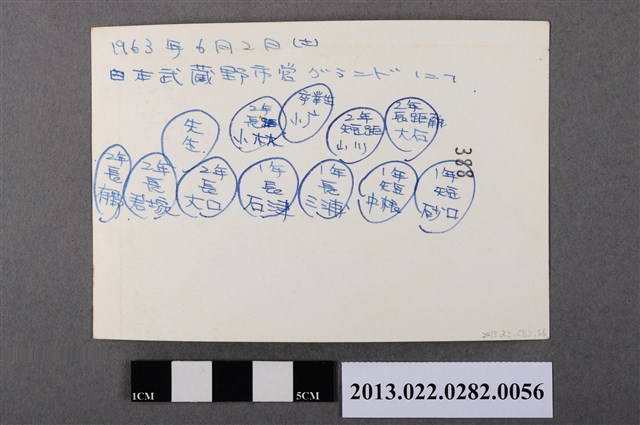 1963年6月2日(土)
日本武蔵野市営グランドにて
先生
2年
長距
小林
卒業生
小厂
2年
短距
山川
2年
長距離
大石
388
2年
長
有野
2年
長
君塚
2年
長
大口
1年
長
石津
1年
長
三浦
1年
短
中根
1年
短
砂口
1CM
5CM
2013.022.0282.0056